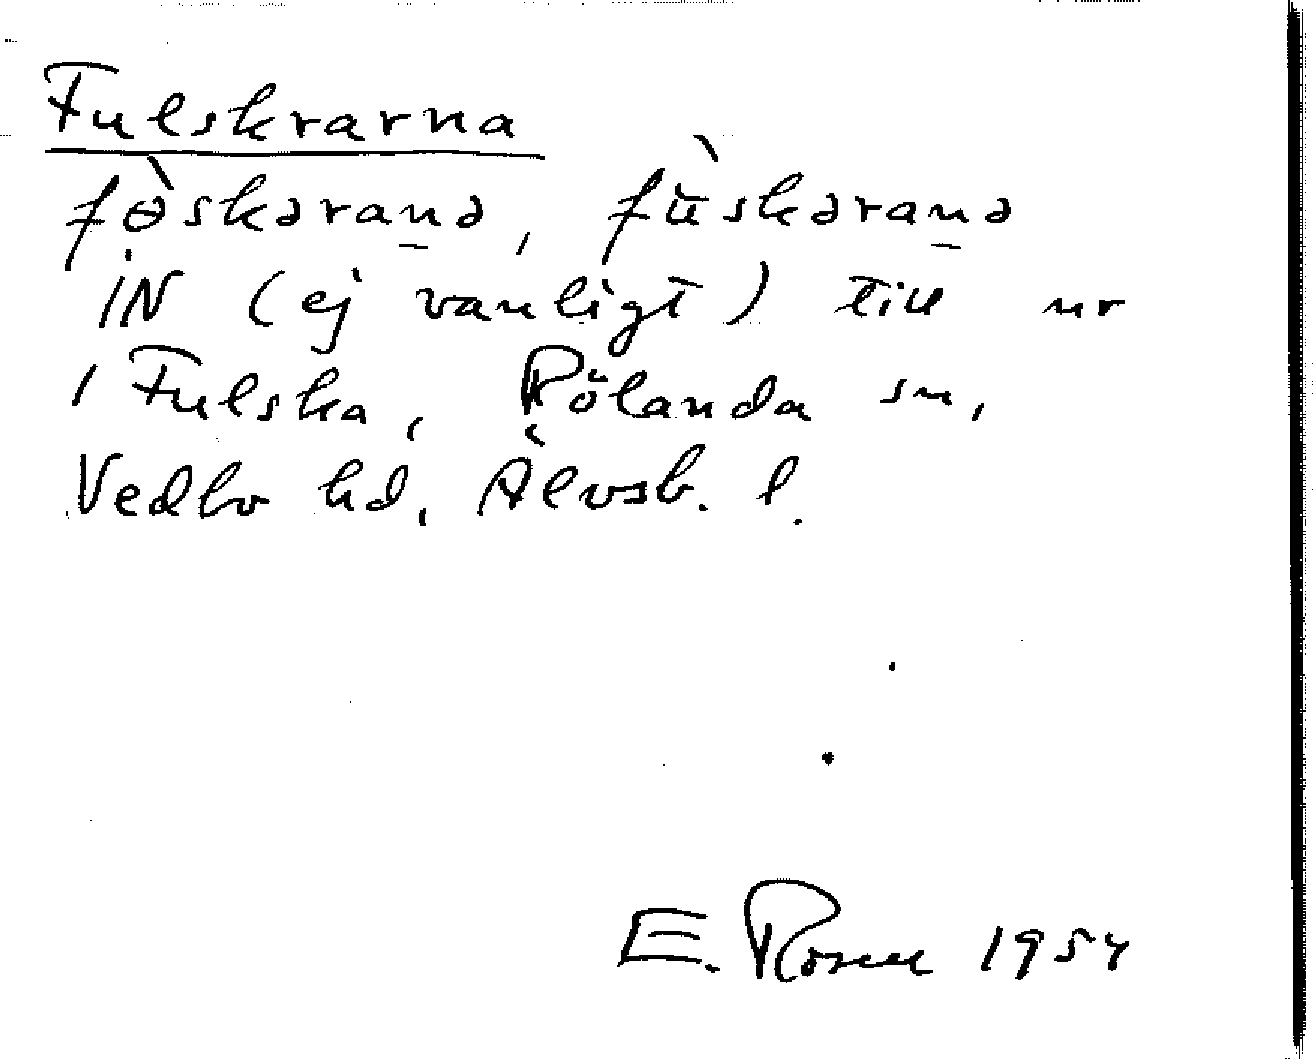 Fulskrarna
fɵ̀skəran̲ə, fʉ̀skəran̲ə
IN (ej vanligt) till nr
1 Fulska, Rölanda sn,
Vedbo hd, Älvsb. l.
E. Rosell 1954